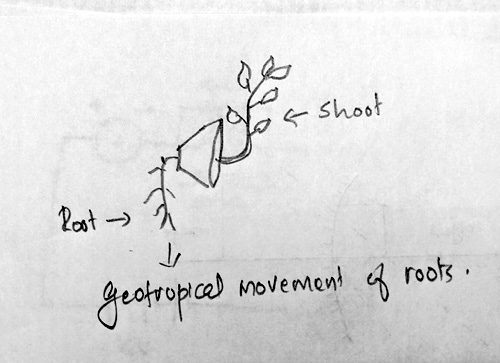 Shoot
Root
geotropical movement of roots.